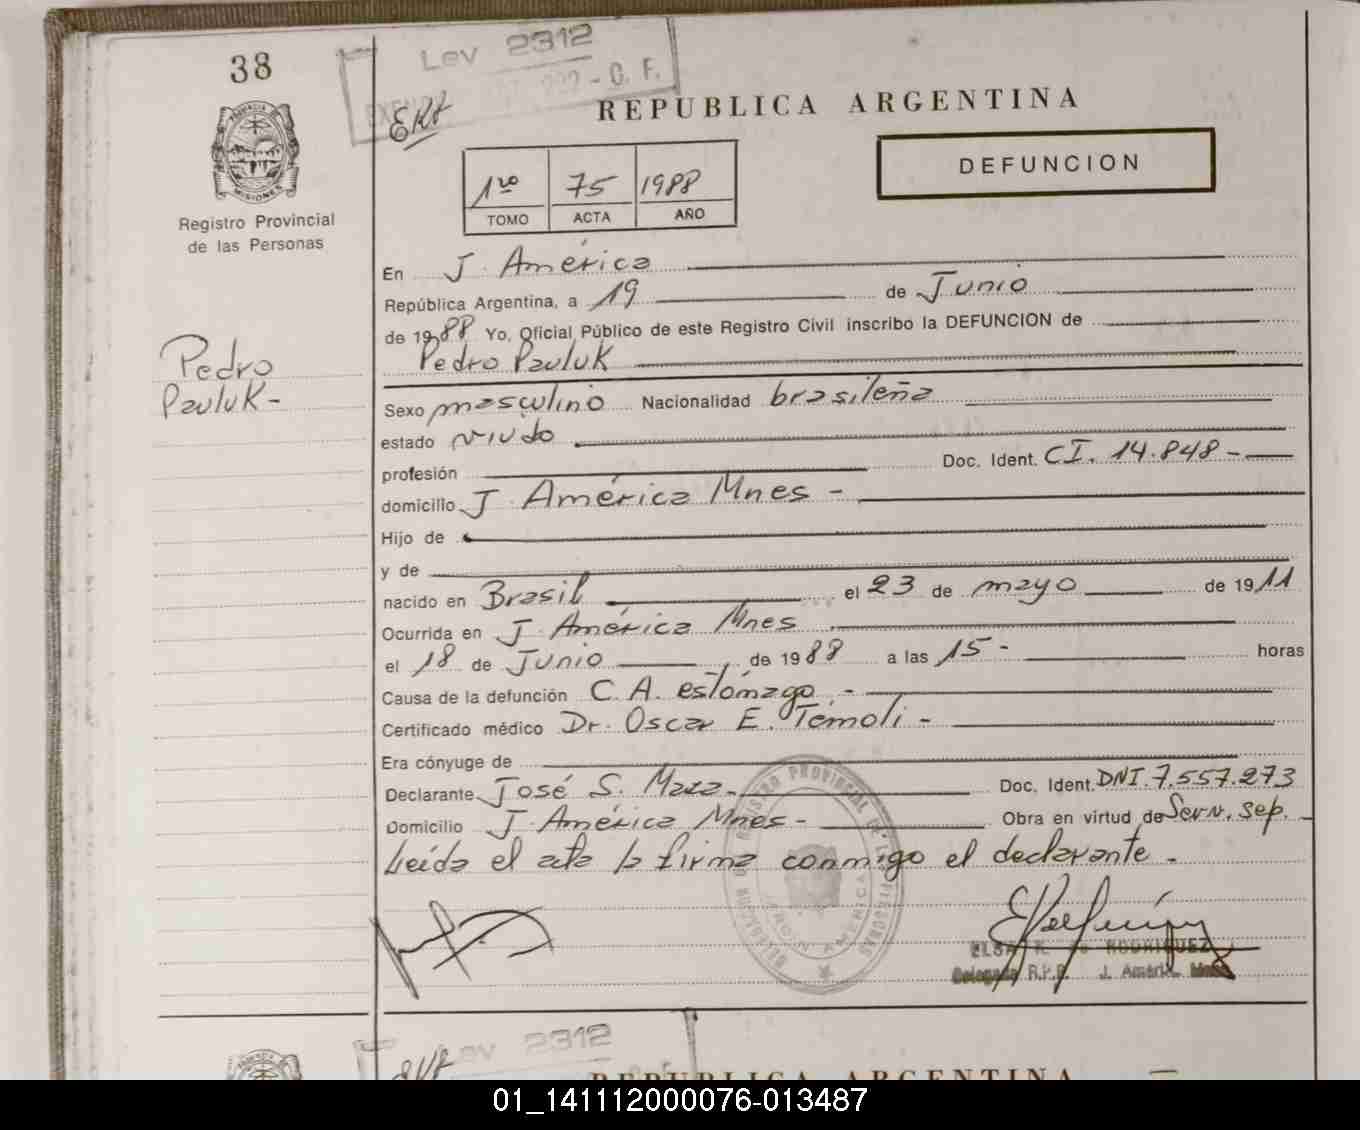 38
Ley 2312
REPUBLICA ARGENTINA
DEFUNCION
PROVINCIA
MISIONES
Registro Provincial
de las Personas
1ro 75 1988
TOMO ACTA AÑO
En J. América
República Argentina, a 19 de Junio
de 1988 Yo, Oficial Público de este Registro Civil inscribo la DEFUNCION de
Pedro Pauluk
Pedro
Pauluk-
Sexo masculino Nacionalidad brasileña
estado viudo
profesión Doc. Ident. CI. 14.848-
domicilio J. América Mnes -
Hijo de
y de
nacido en Brasil el 23 de mayo de 1911
Ocurrida en J. América Mnes
el 18 de Junio de 1988 a las 15- horas
Causa de la defunción C.A. estómago -
Certificado médico Dr. Oscar E. Témoli -
Era cónyuge de
Declarante José S. Maza- Doc. Ident. DNI. 7.557.273
Domicilio J. América Mnes- Obra en virtud de Serv. sep.
Leída el acta la firma conmigo el declarante -
RODRIGUEZ
Delegada R.P.P. J. Améric.
Ley 2312
REPUBLICA ARGENTINA
01_141112000076-013487